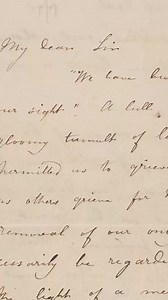 My dear Sir
"We have
our sight". A lull
gloomy tumult of
permitted us to grieve
as others grieve for
removal of our
cessarily be regard
the light of a me